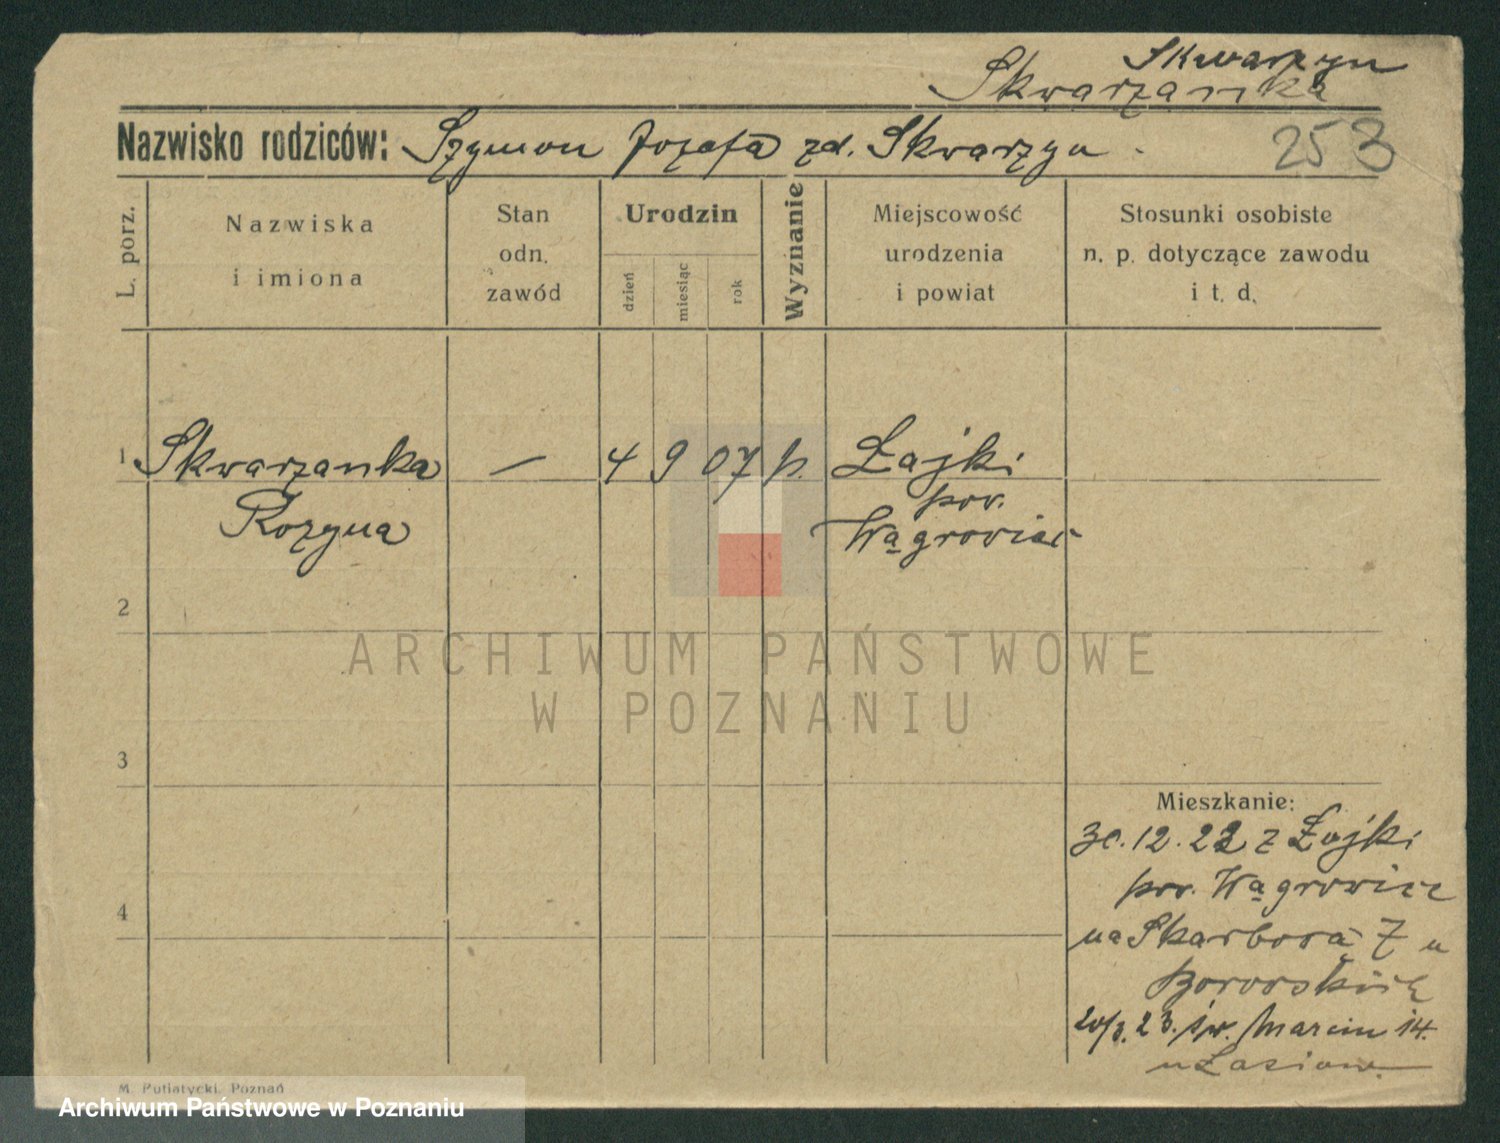 Skwarzyn
Skwarzanka
Nazwisko rodziców: Szymon Józefa zd. Skwarzyn.
253
L. porz.
Nazwiska
i imiona
Stan
odn.
zawód
Urodzin
dzień
miesiąc
rok
Wyznanie
Miejscowość
urodzenia
i powiat
Stosunki osobiste
n. p. dotyczące zawodu
i t. d.
1 Skwarzanka — 4 9 07 p. Łajki
pow.
Rozyna Wągrowiec
2
3
4
Mieszkanie:
30.12.22 z Łajki
pow. Wągrowiec
na Skarbora 7 u
20/3.23. św. Marcin 14.
M. Putiatycki, Poznań
ARCHIWUM PAŃSTWOWE
W POZNANIU
Archiwum Państwowe w Poznaniu